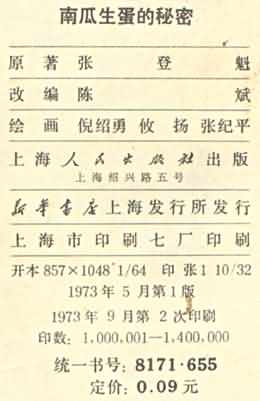 南瓜生蛋的秘密
原著张登魁
改编陈斌
绘画倪绍勇 攸扬 张纪平
上海人民出版社出版
上海绍兴路五号
新华书店上海发行所发行
上海市印刷七厂印刷
开本857×1048 1/64 印张1 10/32
1973年5月第1版
1973年9月第2次印刷
印数：1,000,001—1,400,000
统一书号：8171·655
定价：0.09元